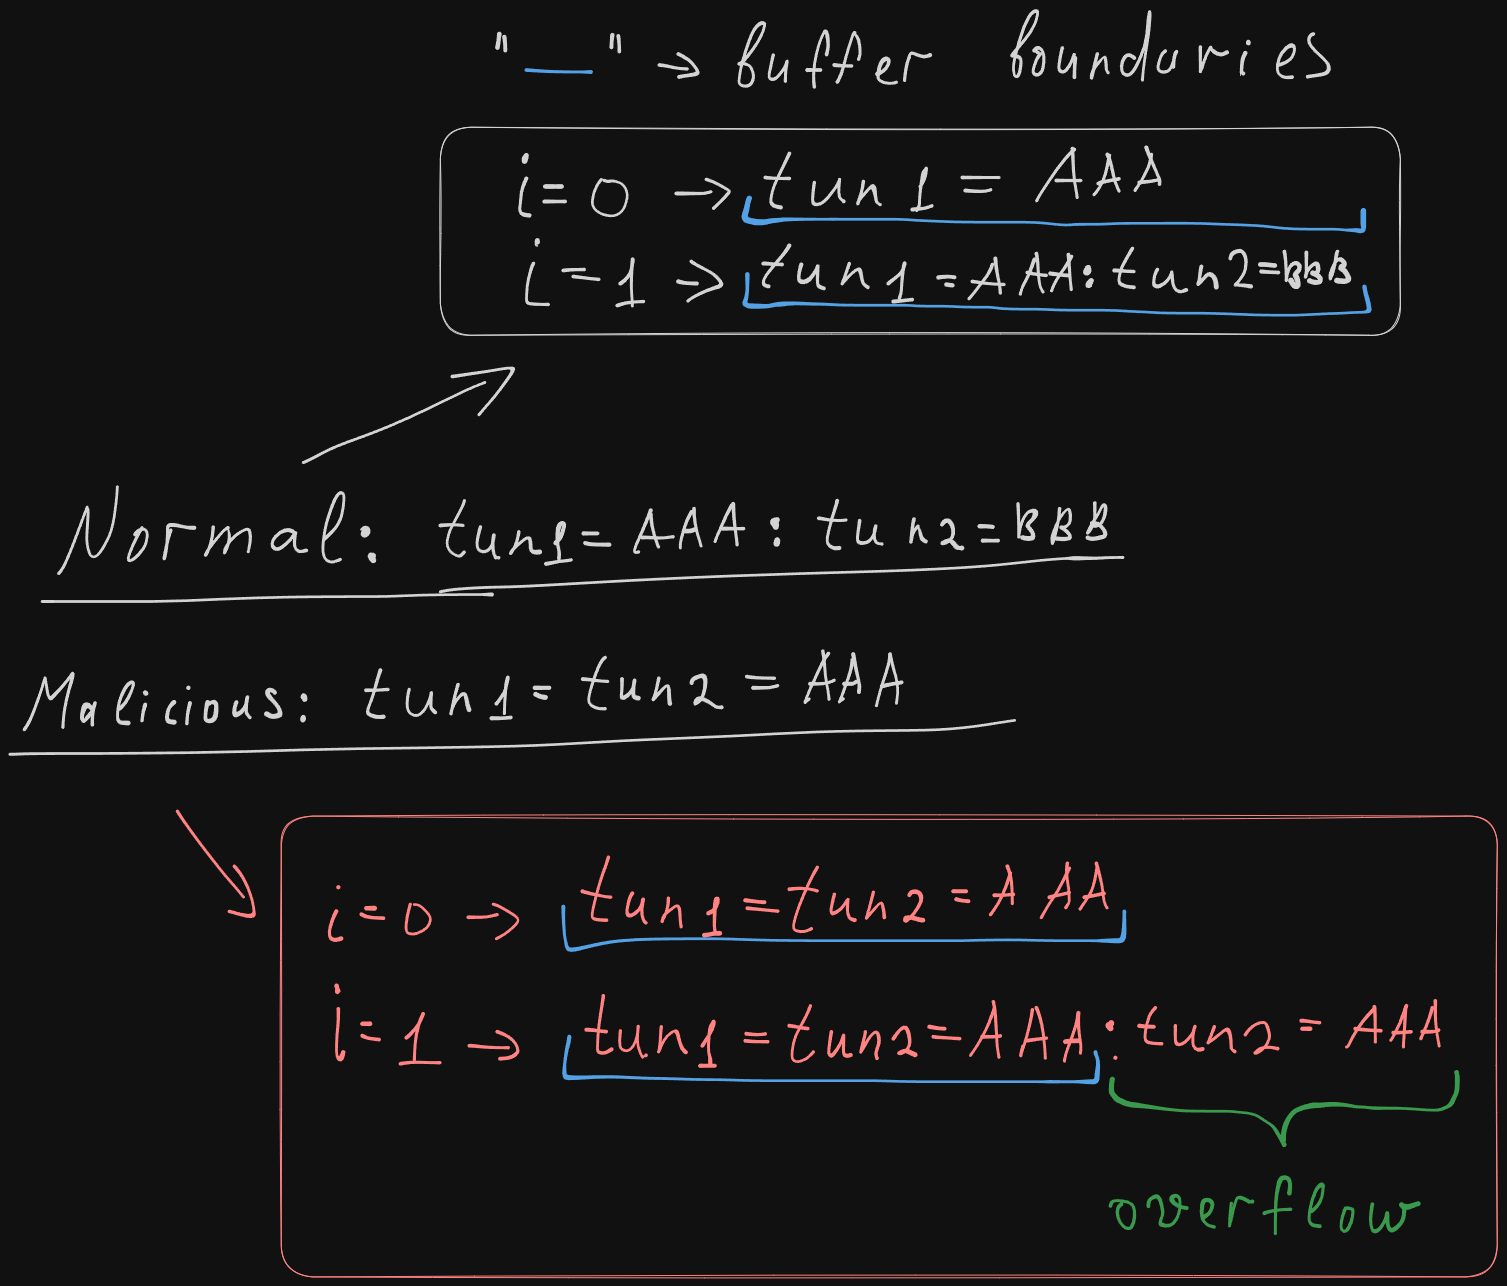 "__" → buffer boundaries
i=0 → tun1 = AAA
i=1 → tun1=AAA:tun2=BBB
Normal: tun1=AAA:tun2=BBB
Malicious: tun1=tun2=AAA
i=0 → tun1=tun2=AAA
i=1 → tun1=tun2=AAA:tun2=AAA
overflow